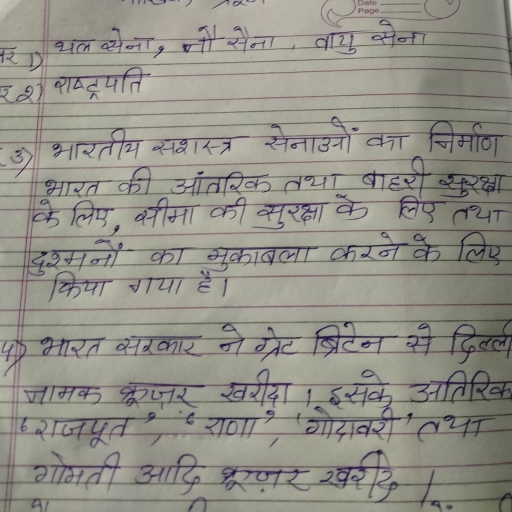 Date
Page
1) थल सेना, नौ सेना, वायु सेना
2) राष्ट्रपति
3) भारतीय सशस्त्र सेनाओं का निर्माण
भारत की आंतरिक तथा बाहरी सुरक्षा
के लिए, सीमा की सुरक्षा के लिए तथा
दुश्मनों का मुकाबला करने के लिए
किया गया है।
4) भारत सरकार ने ग्रेट ब्रिटेन से दिल्ली
नामक क्रूज़र खरीदा। इसके अतिरिक
'राजपूत', 'राणा', 'गोदावरी' तथा
गोमती आदि क्रूज़र खरीदे।